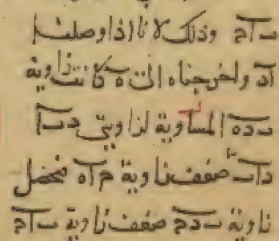 ب ا ج وذلك لانا اذا وصلنا
ا د واخرجناه الى ه كانت زاوية
ب د ه المساوية لزاويتي د ب ا
د ا ب ضعف زاوية ج ا ه فيحصل
زاوية ب د ج ضعف زاوية ب ا ج